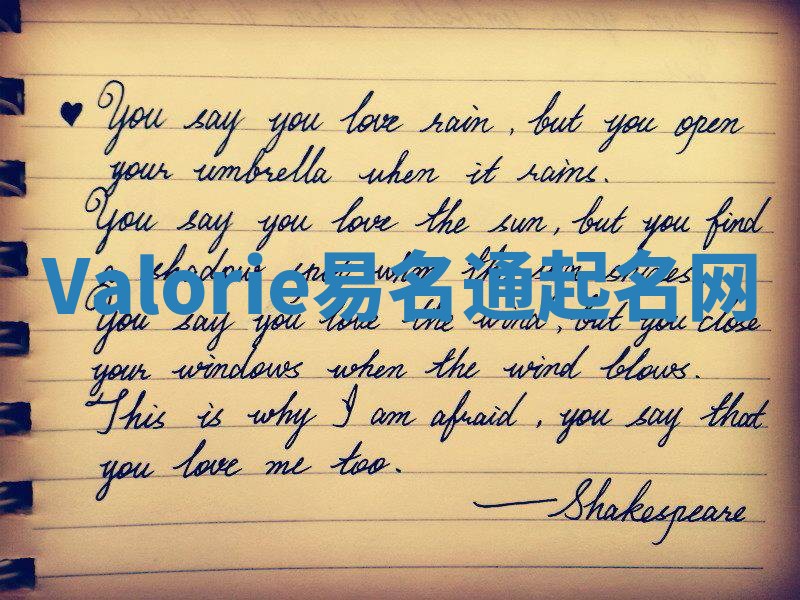 ♥ You say you love rain, but you open
your umbrella when it rains.
You say you love the sun, but you find
a shadow spot when the sun shines.
Valorie易名通起名网
You say you love the wind, but you close
your windows when the wind blows.
This is why I am afraid, you say that
you love me too.
— Shakespeare